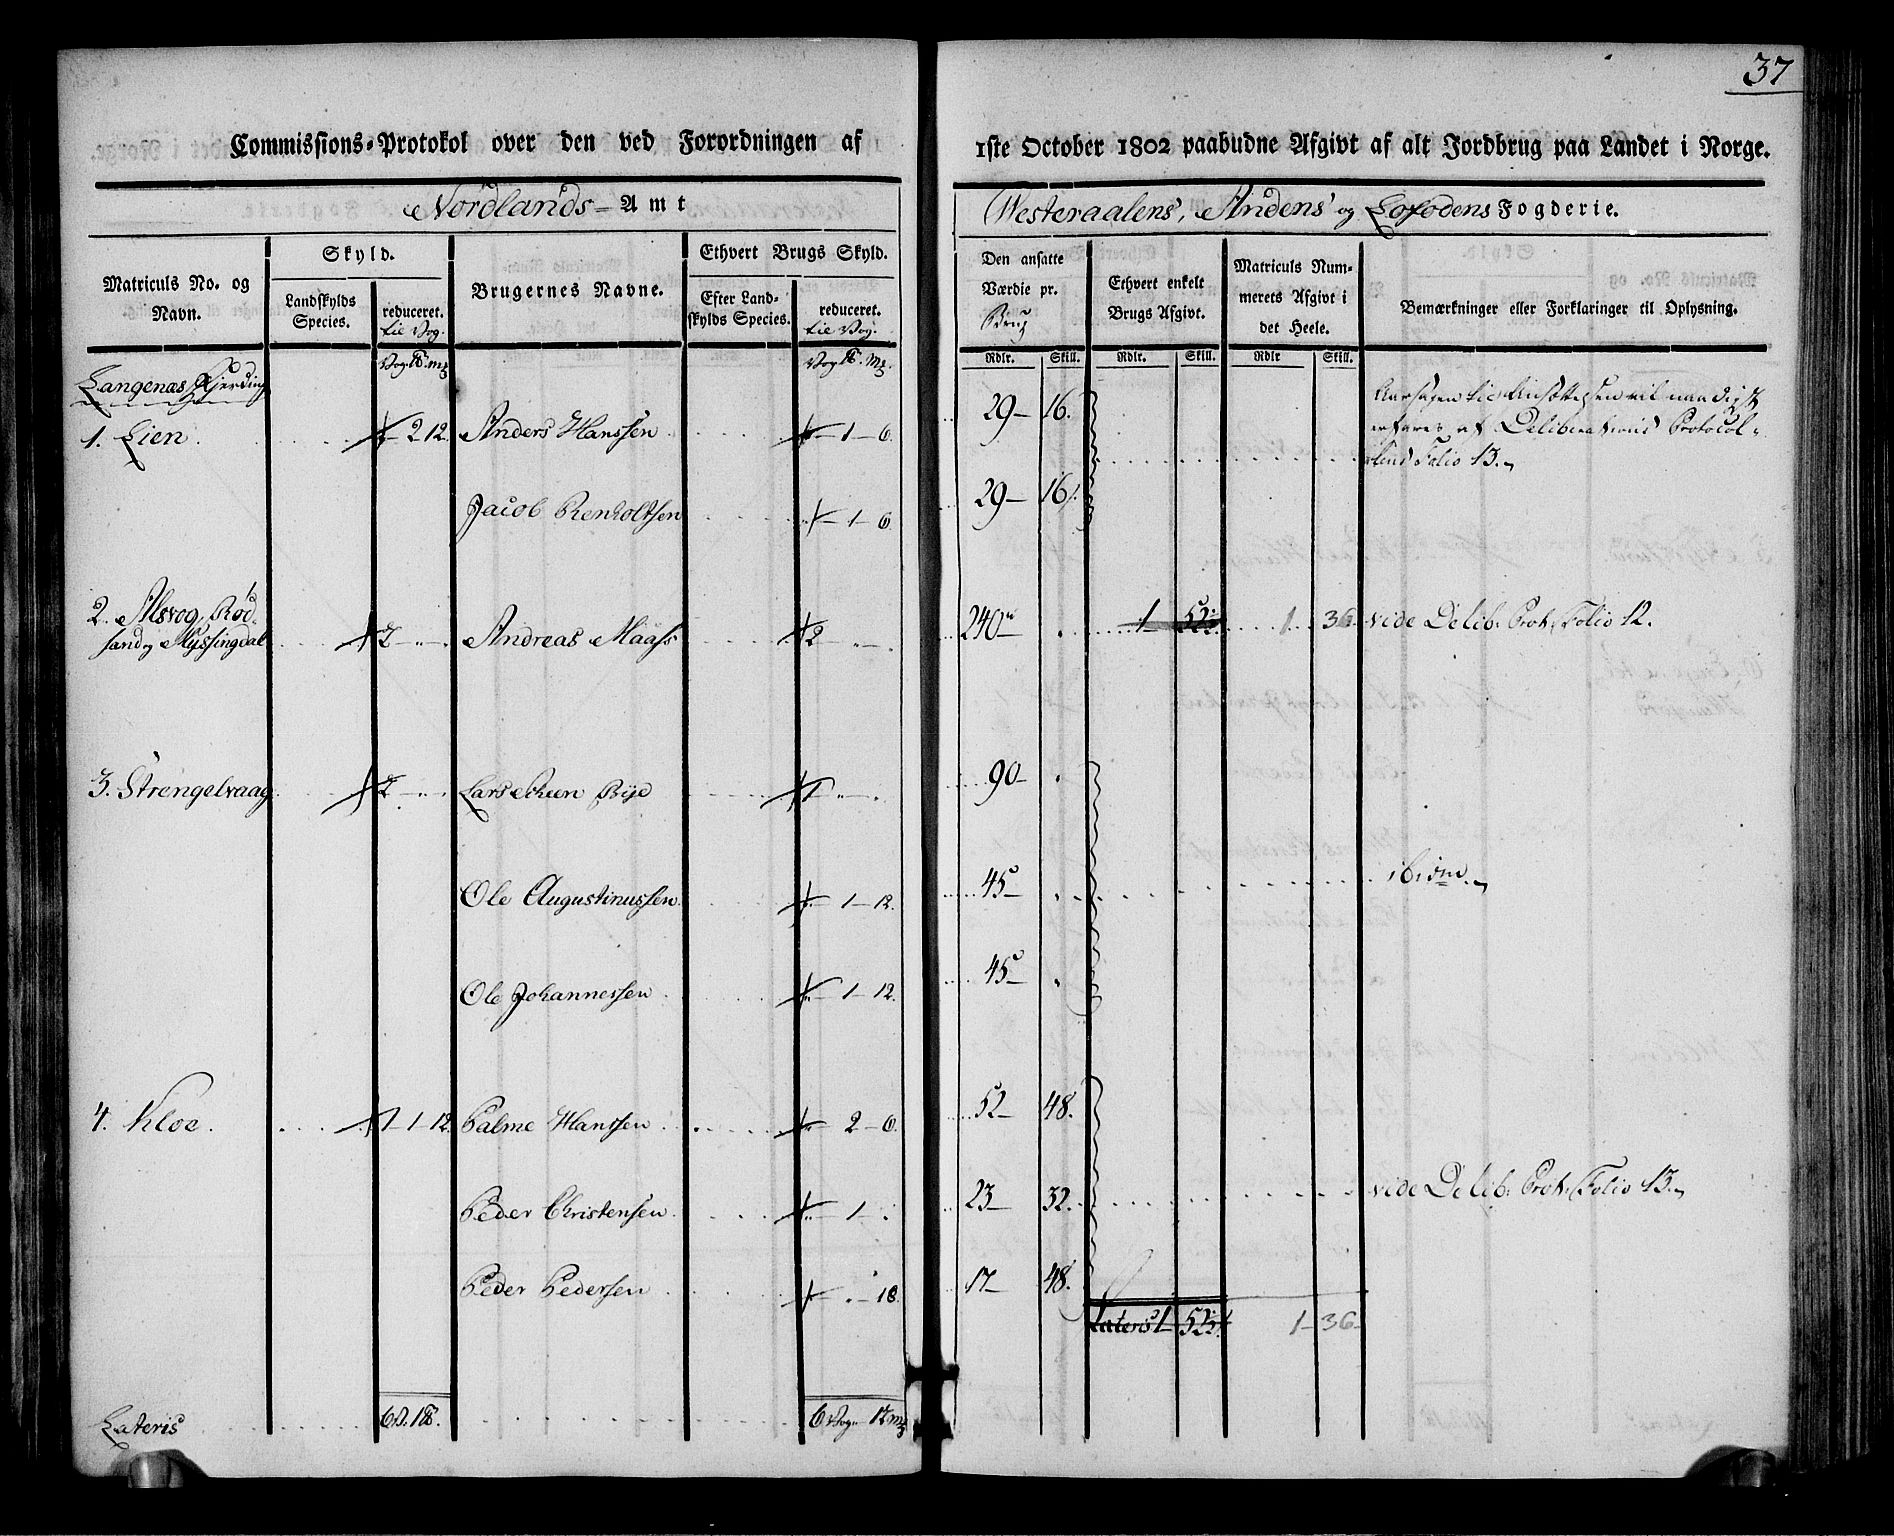 37
Commissions-Protokol over den ved Forordningen af
1ste October 1802 paabudne Afgivt af alt Jordbrug paa Landet i Norge.
Nordlands- Amt
Westeraalens, Andens og Lofodens Fogderie.
Matriculs No. og Navn.
Skyld.
Landskylds Species.
reduceret. til Vog.
Brugernes Navne.
Ethvert Brugs Skyld.
Efter Landskylds Species.
reduceret. til Vog.
Den ansatte Værdie pr. Brug
Ethvert enkelt Brugs Afgivt.
Matriculs Nummerets Afgivt i det Heele.
Bemærkninger eller Forklaringer til Oplysning.
Rdlr. Skill. Rdlr. Skill. Rdlr Skill.
Langenæs Fjerding
1. Lien. 2 12. Anders Hanssen 1-6. 29- 16.
Aarsagen til Ansættelsen vil naadigst
erfares af Deliberations Protocol-
lens Folio 13.
Jacob Renholtsen 1-6 29- 16.
2. Alsvog, Rød-
sand og Myssingdal 2 Andreas Maass 2 240 1 52 1 36 vide Delib. Prot. Folio 12.
3. Strengelvaag 2 Lars Scheen Bye 1 90-
Ole Augustinussen 1-12. 45- ibidm.
Ole Johannessen 1-12. 45-
4. Kloe. 1-1-12. Palme Hanssen 2-6. 52- 48.
Peder Christensen 1 23 32. vide Delib. Prot. Folio 13.
Peder Pedersen 18. 17- 48.
Lateris 1 52 1-36-
Lateris 6 V. 1 6 Vog 1